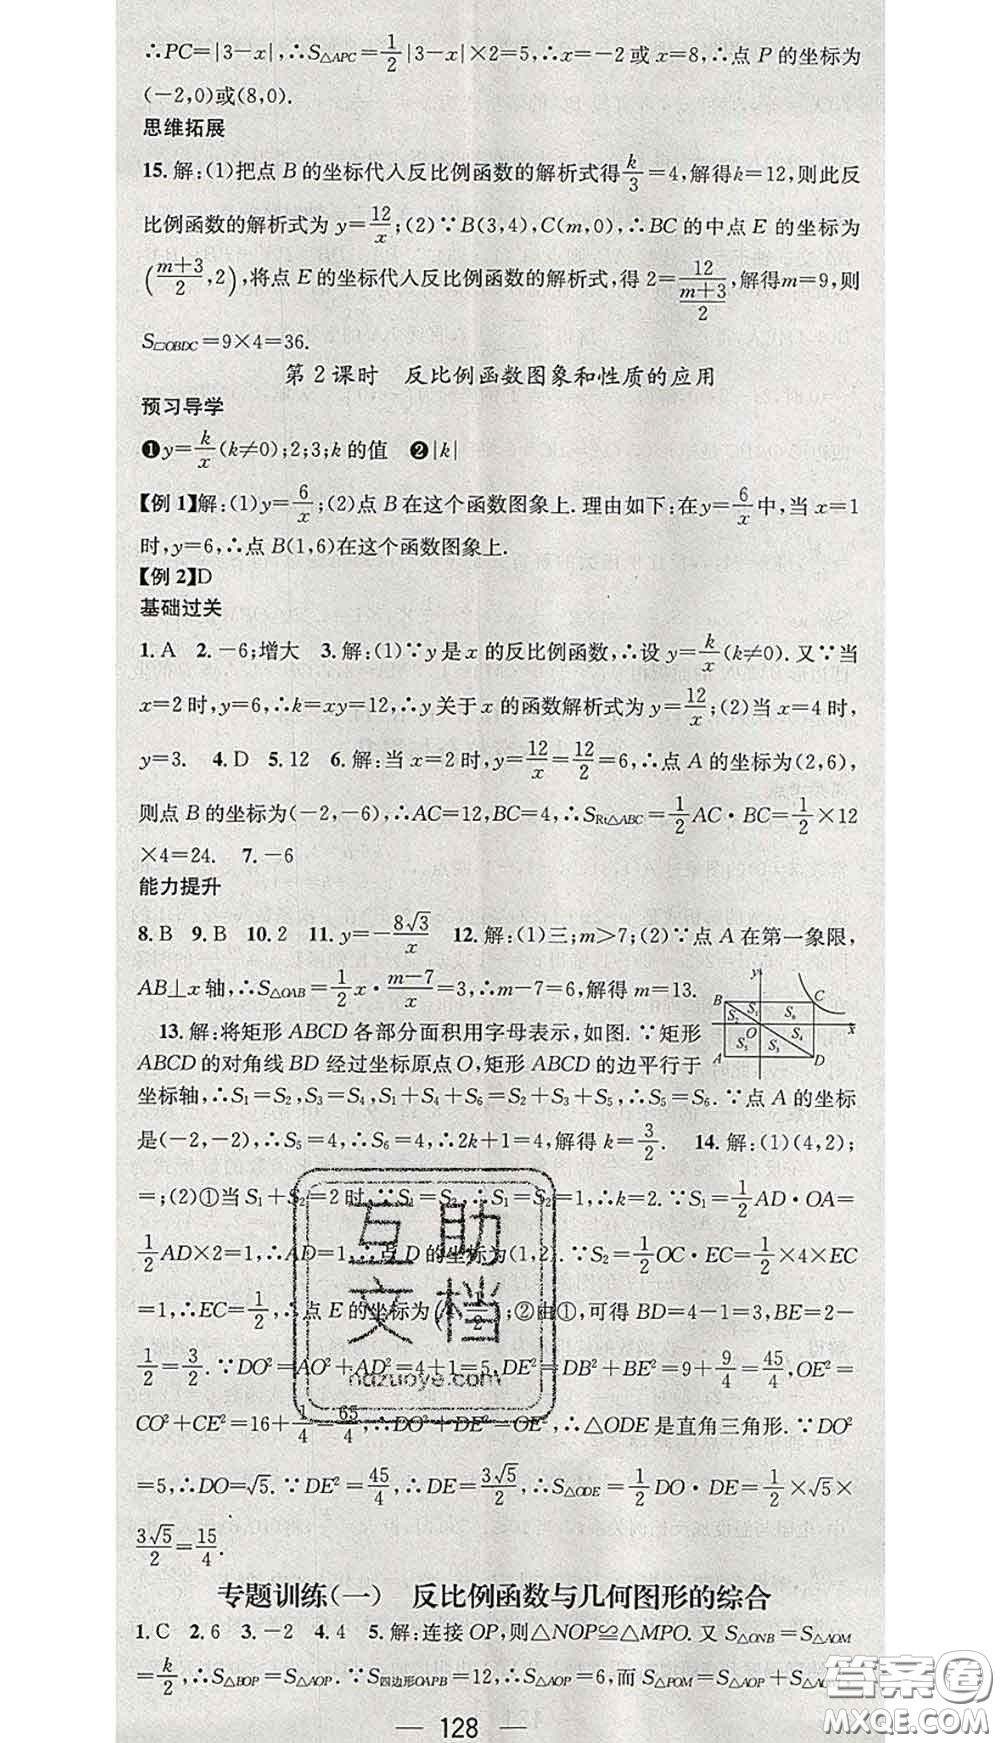 ∴PC=|3-x|,∴S△APC=1/2|3-x|×2=5,∴x=-2或x=8,∴点 P 的坐标为
(-2,0)或(8,0).
思维拓展
15.解:(1)把点 B 的坐标代人反比例函数的解析式得k/3=4,解得k=12,则此反
比例函数的解析式为 y=12/x;(2)∵B(3,4),C(m,0),∴BC 的中点 E 的坐标为
((m+3)/2,2),将点 E 的坐标代人反比例函数的解析式,得 2=12/((m+3)/2),解得m=9,则
S□OBDC=9×4=36.
第 2 课时 反比例函数图象和性质的应用
预习导学
❶y=k/x(k≠0);2;3;k 的值 ❷|k|
【例 1】解:(1)y=6/x;(2)点 B 在这个函数图象上.理由如下:在 y=6/x中,当 x=1
时,y=6,∴点 B(1,6)在这个函数图象上.
【例 2】D
基础过关
1.A 2.-6;增大 3.解:(1)∵y 是 x 的反比例函数,∴设 y=k/x(k≠0).又∵当
x=2 时,y=6,∴k=xy=12,∴y 关于 x 的函数解析式为 y=12/x;(2)当 x=4 时,
y=3. 4.D 5.12 6.解:当 x=2 时,y=12/x=12/2=6,∴点 A 的坐标为(2,6),
则点 B 的坐标为(-2,-6),∴AC=12,BC=4,∴SRt△ABC=1/2AC·BC=1/2×12
×4=24. 7.-6
能力提升
8.B 9.B 10.2 11.y=-8√3/x 12.解:(1)三;m>7;(2)∵点 A 在第一象限,
AB⊥x 轴,∴S△OAB=1/2x·(m-7)/x=3,∴m-7=6,解得 m=13.
13.解:将矩形 ABCD 各部分面积用字母表示,如图.∵矩形
ABCD 的对角线 BD 经过坐标原点 O,矩形 ABCD 的边平行于
y B C S₂ S₁ S₆ O x S₅ S₃ S₄ A D
坐标轴,∴S₁=S₂,S₃=S₄,S₁+S₄+S₆=S₂+S₃+S₅,∴S₅=S₆.∵点 A 的坐标
是(-2,-2),∴S₅=4,∴S₆=4,∴2k+1=4,解得 k=3/2. 14.解:(1)(4,2);
=;(2)①当 S₁+S₂=2 时,∵S₁=S₂,∴S₁=S₂=1,∴k=2.∵S₁=1/2AD·OA=
1/2AD×2=1,∴AD=1,∴点 D 的坐标为(1,2).∵S₂=1/2OC·EC=1/2×4×EC
=1,∴EC=1/2,∴点 E 的坐标为(4,1/2);②由①,可得 BD=4-1=3,BE=2-
1/2=3/2.∵DO²=AO²+AD²=4+1=5,DE²=DB²+BE²=9+9/4=45/4,OE²=
CO²+CE²=16+1/4=65/4,∴DO²+DE²=OE²,∴△ODE 是直角三角形.∵DO²
=5,∴DO=√5.∵DE²=45/4,∴DE=3√5/2,∴S△ODE=1/2DO·DE=1/2×√5×
3√5/2=15/4.
专题训练(一) 反比例函数与几何图形的综合
1.C 2.6 3.-2 4.4 5.解:连接 OP,则△NOP≌△MPO.又 S△ONB=S△AOM
=k/2,∴S△BOP=S△AOP.∵S四边形OAPB=12,∴S△AOP=6,而 S△POM=S△AOP+S△AOM
— 128 —
互助
文档
hdzuoye.com
答案圈
MXQE.COM